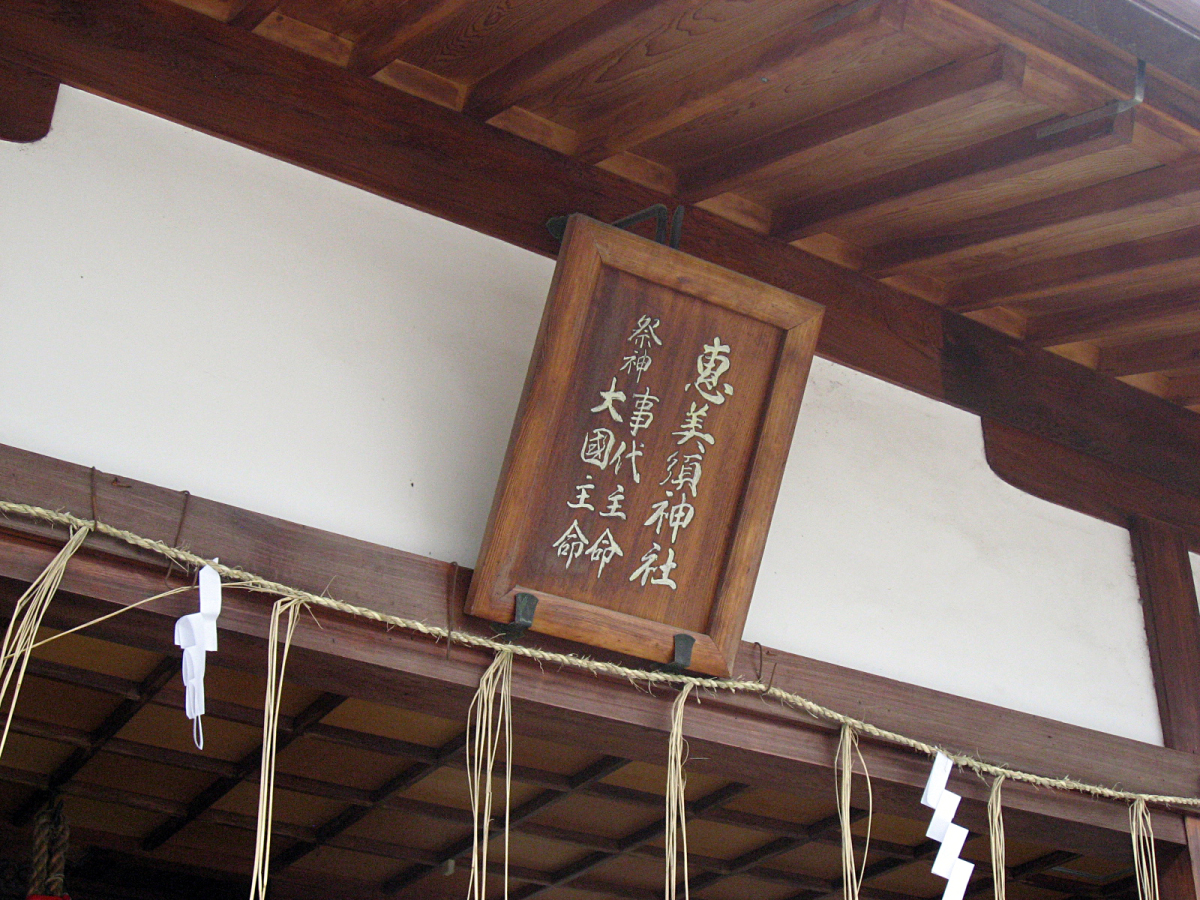 恵美須神社
祭神 事代主命
大國主命